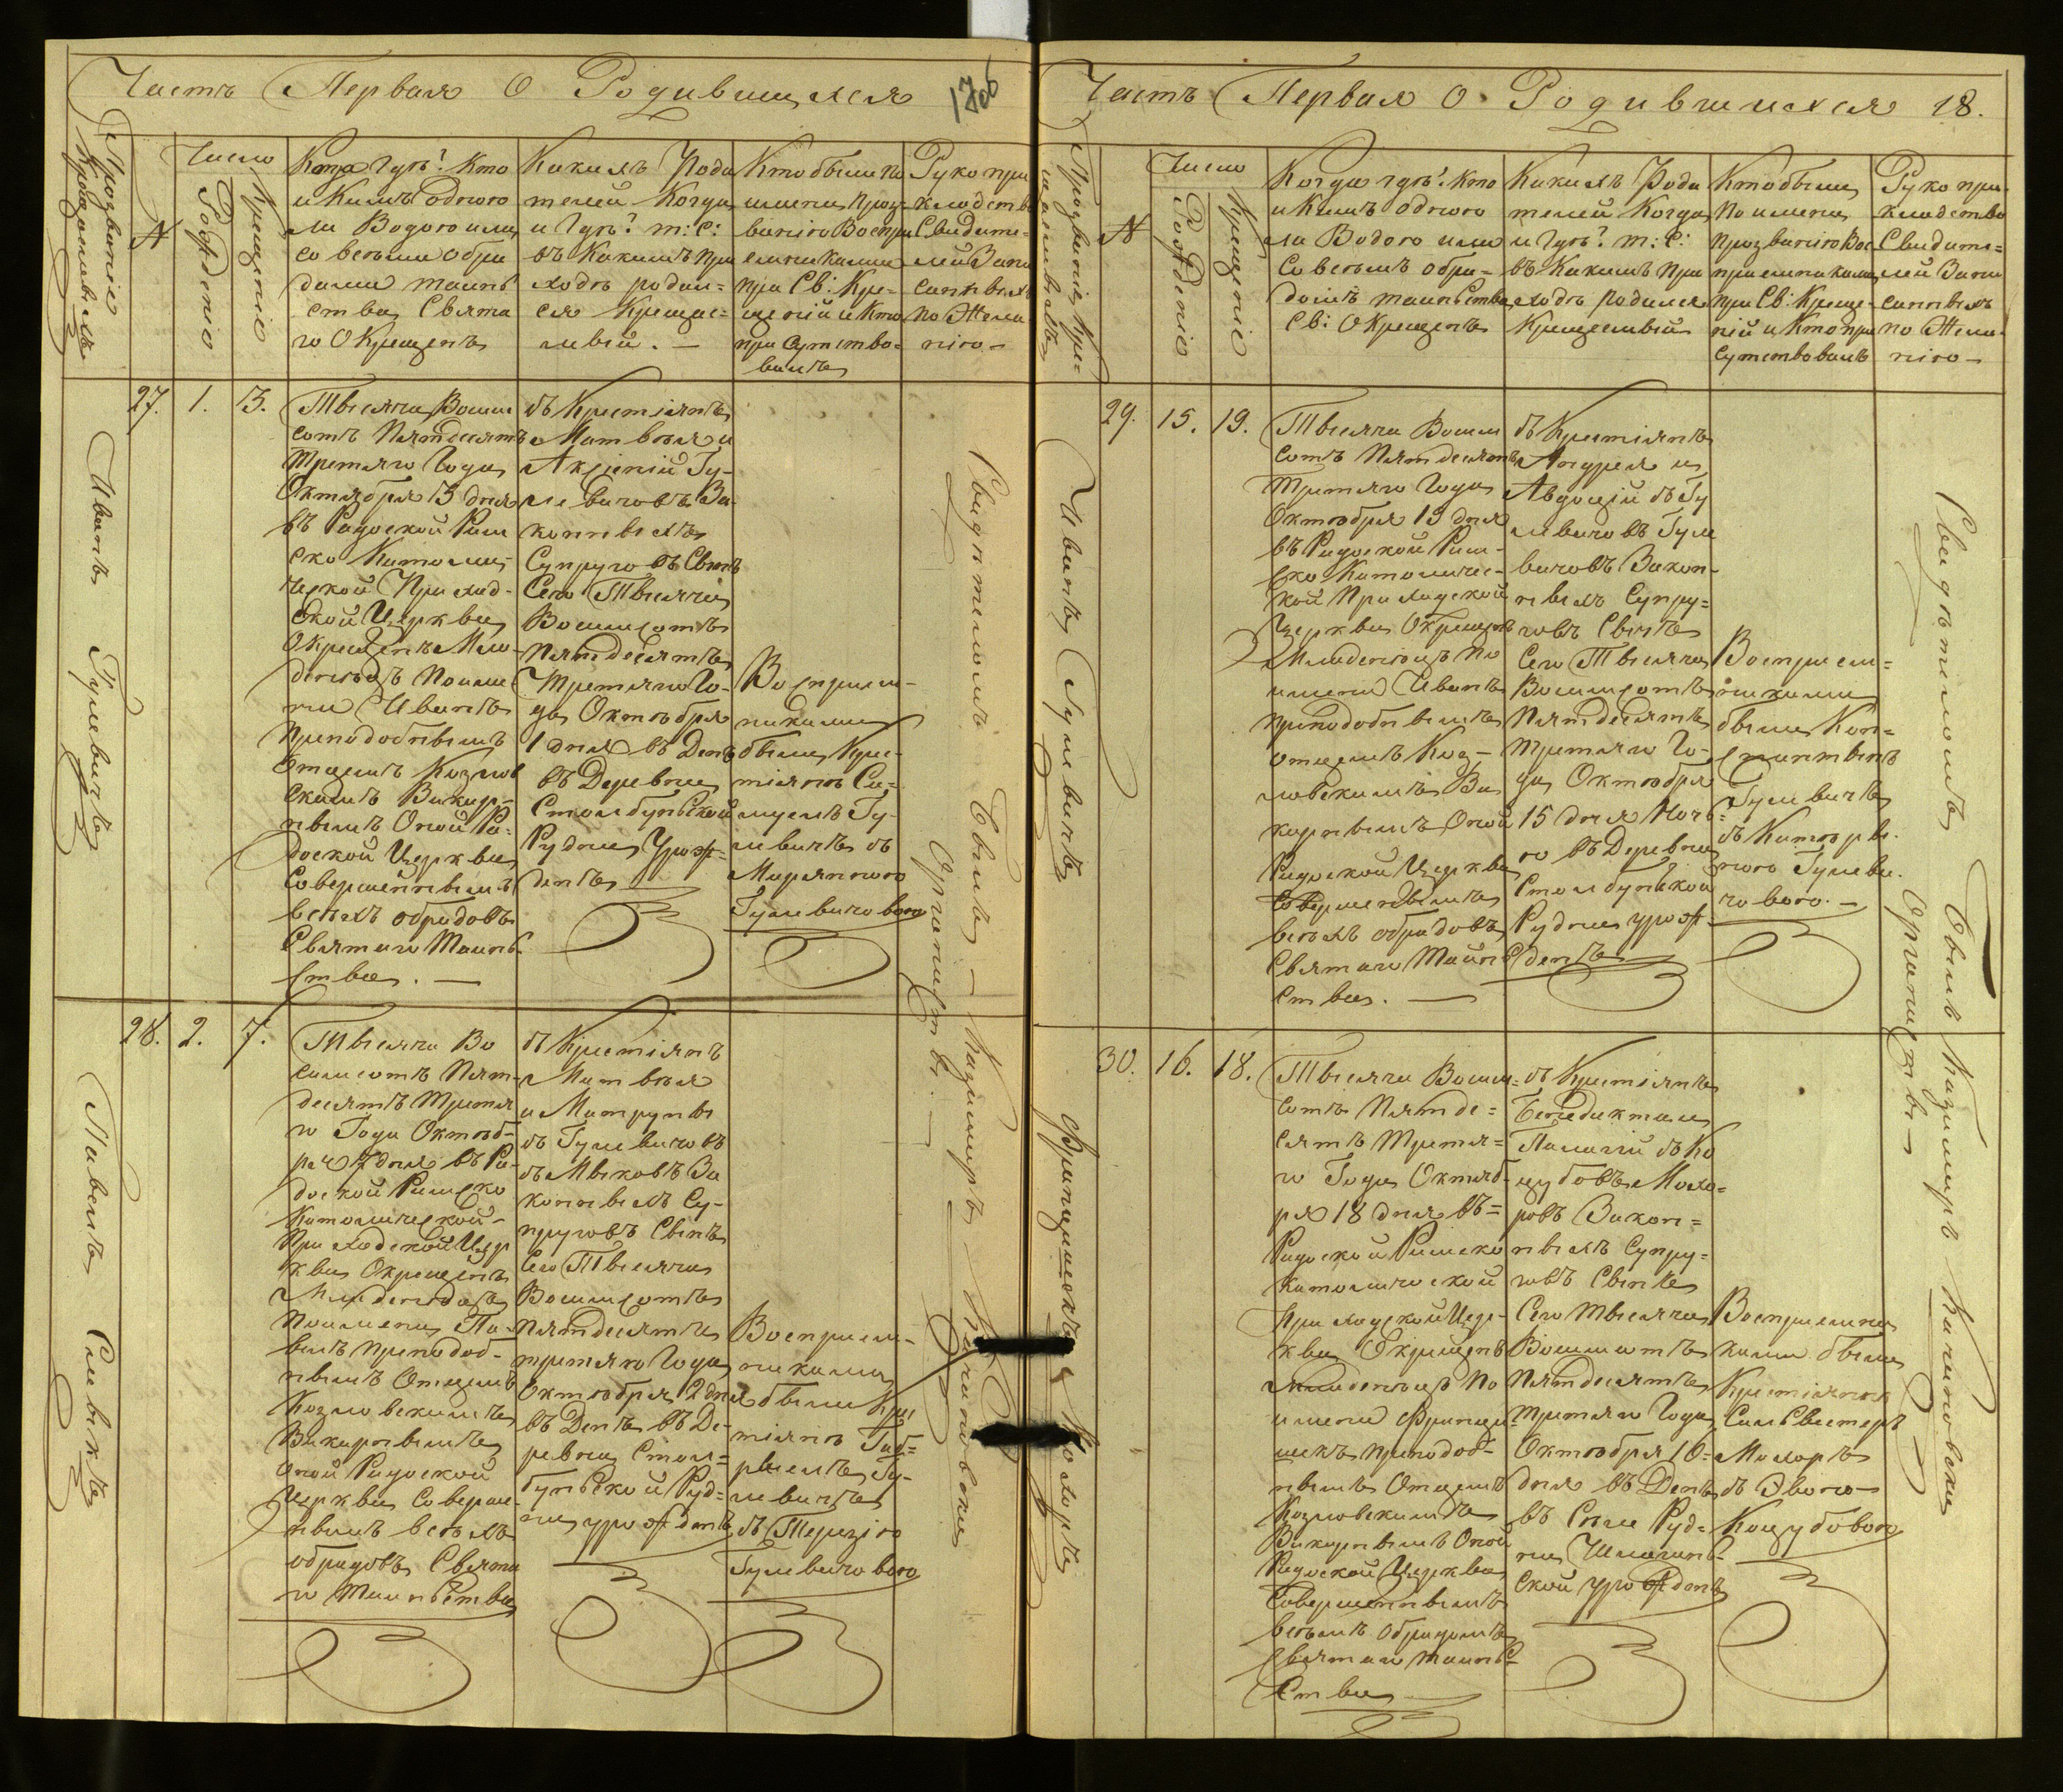 Часть Первая О Родившихся
17об
Прозваніе Крещаемыхъ
N
Число
Рожденіе
Крещеніе
Когда гдѣ? Кто
и Кимъ Одною
ли Водою или
со всѣми обря
дами таинъ
ства Свята
го Окрещенъ
Какихъ Роди
телей Когда
и Гдѣ? т: с:
въ Какимъ при
ходѣ родил=
ся Крещае=
мый. —
Кто были по
имени, проз
ванію Воспри
емниками
при Св: Кре=
щеній и Кто
присутство=
валъ
Руко при
кладство
Свидите=
лей Запи
санныхъ
по Жела
нію —
27. 1. 3.
Иванъ Гулевичъ
Тысяча Восим
сотъ Пятдесятъ
Третяго Года
Октября 3 дня
въ Радоской Рим
ско Католи-
ческой Приход-
ской Церквы
Окрещенъ Мла-
денецъ Поиме
ни Иванъ
Преподобнымъ
Отцемъ Козлов
скимъ Викар-
нымъ Оной Ра-
доской Церквы
Совершеннымъ
всѣхъ обрядовъ
Святаго Таинъ
ства. —
съ Крестіянъ
Матвѣя и
Аксеній Гу-
левичовъ За-
конныхъ
Супруговъ Сынъ
Сего Тысяча
Восимсотъ
Пятдесятъ
Третяго Го-
да Октобря
1 дня въ День
въ Деревне
Столбунской
Рудне Урож-
денъ
Восприем-
никами
были Крес-
тіяне Са-
муелъ Гу-
левичъ съ
Маріянною
Гулевичовою
Свидѣтелемъ Былъ — Казимиръ Качановскій
Органистъ. —
28. 2. 7.
Павелъ Гулевичъ
Тысяча Во
симсотъ Пят-
десятъ Третя
го Года Октоб-
ря 7 дня въ Ра-
доской Римско
Католической-
Приходской Цер
квы Окрещенъ
Младенецъ
Поимени Па-
велъ Преподоб-
нымъ Отцемъ
Козловскимъ
Викарнымъ
Оной Радоской
Церквы Соверше-
ннымъ всѣхъ
обрядовъ Свята
го Таинъства
съ Крестіянъ
Матвѣя
и Матруны
съ Гулевичовъ
Законныхъ Су-
пруговъ Сынъ
Сего Тысяча
Восимсотъ
Пятдесятъ
третяго Года
Октобря 2 дня
въ День въ Де-
ревни Стол=
бунской Руд=
ни урожденъ
Восприем-
никами
были Крес
тіяне Габ=
ріелъ Гу-
левичъ
съ Терезію
Гулевичовою
Часть Первая О Родившихся 18.
Прозваніе Кре=
щаемыхъ
N
Число
Рожденіе
Крещеніе
Когда гдѣ? Кто
и Кимъ Одною
ли Водою или
Со всѣмъ обря-
домъ таинъства
Св: Окрещенъ
Какихъ Роди
телей Когда
и Гдѣ? т: с:
въ Какимъ При
ходѣ родился
Крещаемый
Кто были
По имени,
прозванію Вос
приемниками
при Св: Креще-
ній и Кто при
сутствовалъ
Руко при-
кладство
Свидите=
лей Запи
санныхъ
по Жела-
нію —
29. 15. 19.
Иванъ Гулевичъ
Тысяча Восим
сотъ Пятдесятъ
Третяго Года
Октобря 19 дня
въ Радоской Рим-
ско Католичес-
кой Приходской
Церквы Окрещенъ
Младенецъ По
имени Иванъ
Преподобнымъ
отцемъ Коз-
ловскимъ Ви
карнымъ Оной
Радоской Церквы
Совершеннымъ
всѣхъ обрядовъ
Святаго Таинъ
ства. —
съ Крестіянъ
Андрея и
Авдоцій съ Гу
левичовъ Гуле
вичовъ Закон-
ныхъ Супру=
говъ Сынъ
Сего Тысяча
Восимсотъ
Пятдесятъ
Третяго Го-
да Октобря
15 дня Ночь-
ю въ Деревне
Столбунской
Рудне урож-
денъ
Восприем=
никами
были Кон=
стантынъ
Гулевичъ
съ Катары-
ною Гулеви-
човою. —
Свидѣтелемъ Былъ Казимиръ Качановскій
Органистъ —
30. 16. 18.
Францишекъ Мохоръ
Тысяча Восим=
сотъ Пятде=
сятъ Третя=
го Года Октяб-
ря 18 дня въ=
Радоской Римско
католической
Приходской Цер-
квы Окрещенъ
Младенецъ По
имени Францы
шекъ преподоб-
нымъ Отцемъ
Козловскимъ
Викарнымъ Оной
Радоской Церквы
Совершеннымъ
всѣмъ Обрядомъ
Святаго таинъс-
тва
съ Крестіянъ
Бенедикта и
Палагій съ Ко
цубовъ Мохо=
ровъ Закон=
ныхъ Супру=
говъ Сынъ
Сего Тысяча
Восимсотъ
Пятдесятъ
Третяго Года
Октобря 16=
дня въ День
въ Селе Руд=
ни Шлягин-
ской урожденъ
Восприемни
ками были
Крестіяне
Силвестеръ
Мохоръ
съ Эвою—
Коцубовою